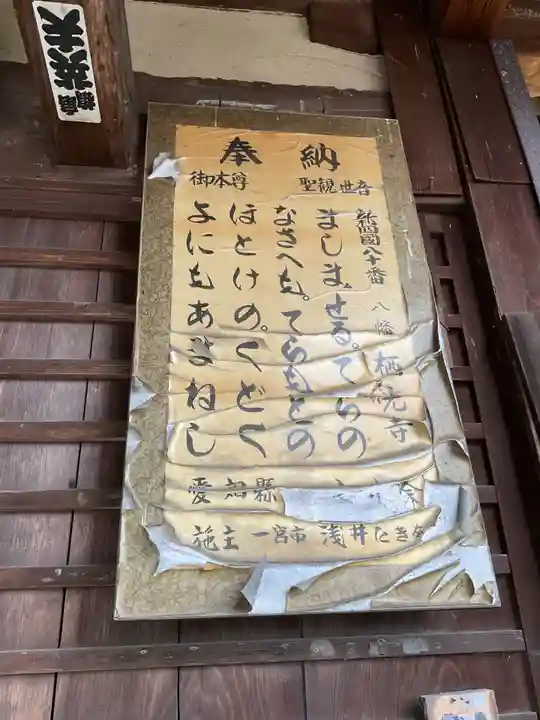 奉納
御本尊 聖観世音
新四国八十番 八幡 栖光寺
ましませる。てらの
なさへも。てらもとの
ほとけの。くどく
よにもあまねし
愛知縣
施主 一宮市 浅井たき
英夫